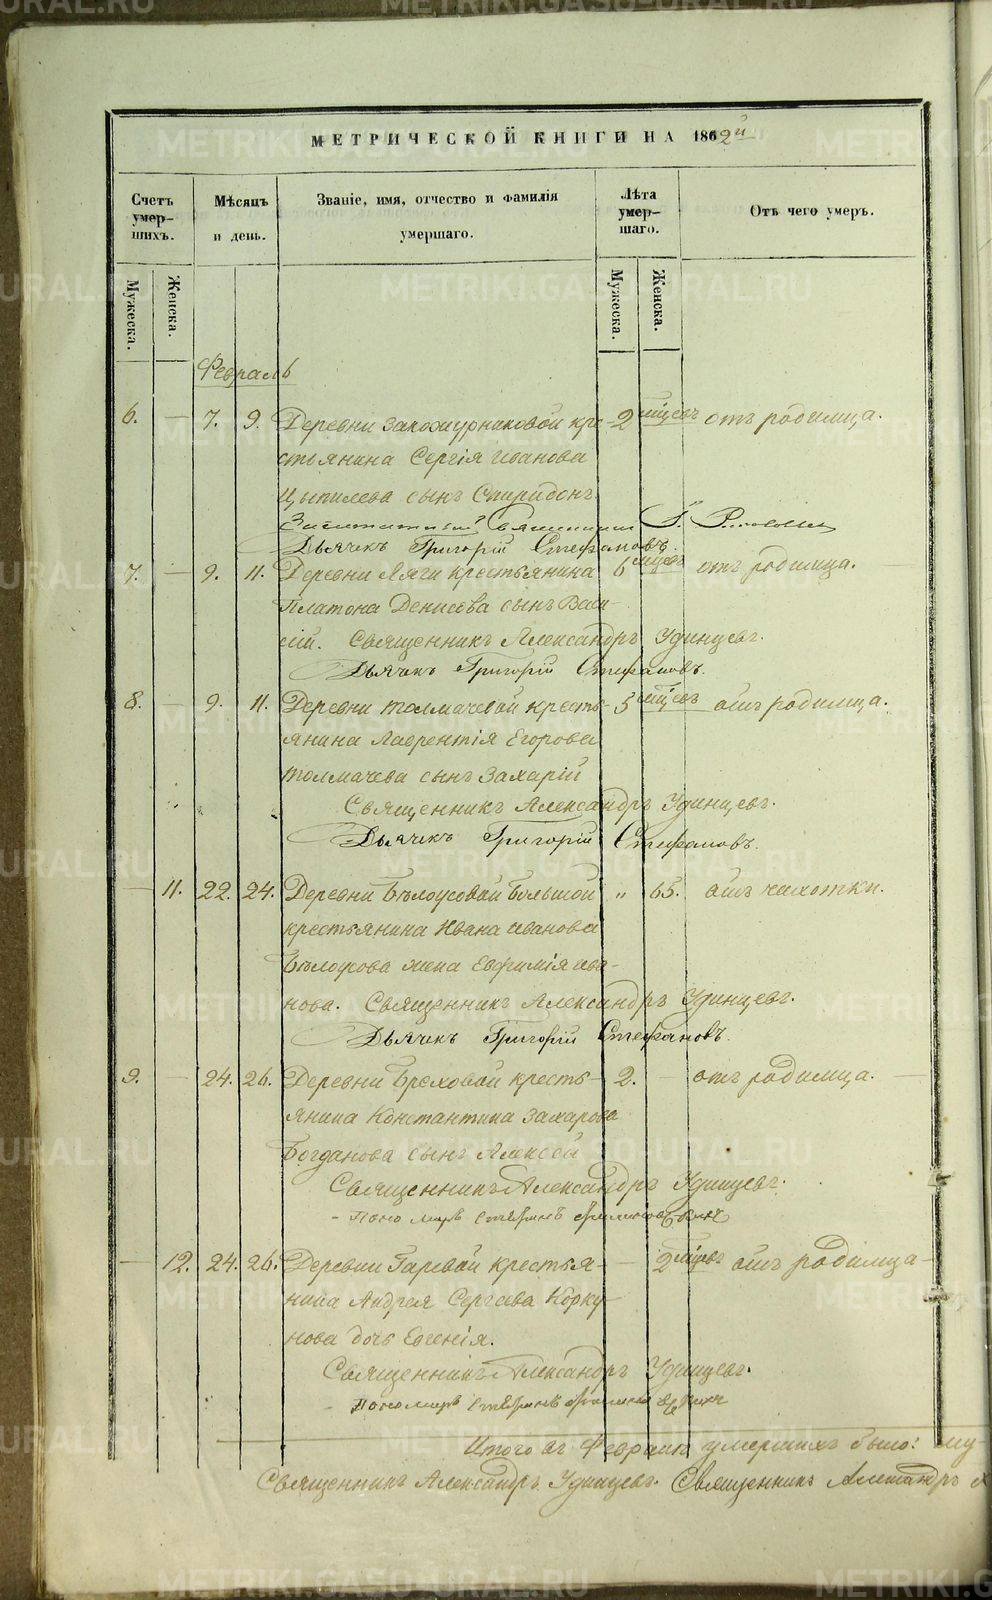 МЕТРИЧЕСКОЙ КНИГИ НА 1862й
Счетъ умер-шихъ. Мѣсяцъ и день. Званіе, имя, отчество и фамилія умершаго. Лѣта умер-шаго. Отъ чего умеръ.
Мужеска. Женска. Мужеска. Женска.
Февраль
6. — 7. 9. Деревни кре- 2 мѣсцевъ отъ родимца.
стьянина Сергія Иванова
сынъ Спиридонъ.
Дьячекъ Григорій Стефановъ.
7. — 9. 11. Деревни Ляги крестьянина 6 мѣсцевъ отъ родимца.
Платона Денисова сынъ Васи-
лій. Священникъ Александръ Удинцевъ.
Дьячекъ Григорій Стефановъ.
8. — 9. 11. Деревни Толмачевой кресть- 5 мѣсцевъ отъ родимца.
янина Лаврентія Егорова
Толмачева сынъ Захарій
Священникъ Александръ Удинцевъ.
Дьячекъ Григорій Стефановъ.
— 11. 22. 24. Деревни Бѣлоусовой Большой „ 65. отъ чахотки.
крестьянина Ивана Иванова
Бѣлоусова жена Евфимія Ива-
нова. Священникъ Александръ Удинцевъ.
Дьячекъ Григорій Стефановъ.
9. — 24. 26. Деревни Бреховой кресть- 2. отъ родимца.
янина Константина Захарова
Богданова сынъ Алексѣй
Священникъ Александръ Удинцевъ.
Пономарь
— 12. 24. 26. Деревни Гаревой крестья- — 2 мѣсцевъ отъ родимца
нина Андрея Сергѣева Корку-
нова дочь Евгенія.
Священникъ Александръ Удинцевъ.
Пономарь
Итого въ Февралѣ умершихъ было: му
Священникъ Александръ Удинцевъ. Священникъ Александръ